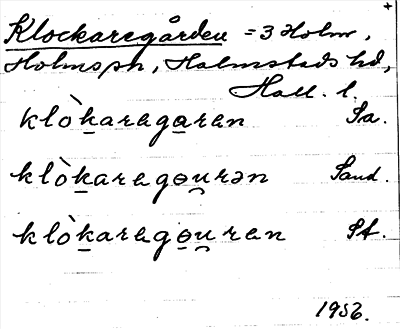 Klockaregården = 3 Holm,
Holms sn, Halmstads hd,
Hall. l.
klòkaragaran Sa.
klòkaragəurən Sand.
klòkaragəuran St.
1956.